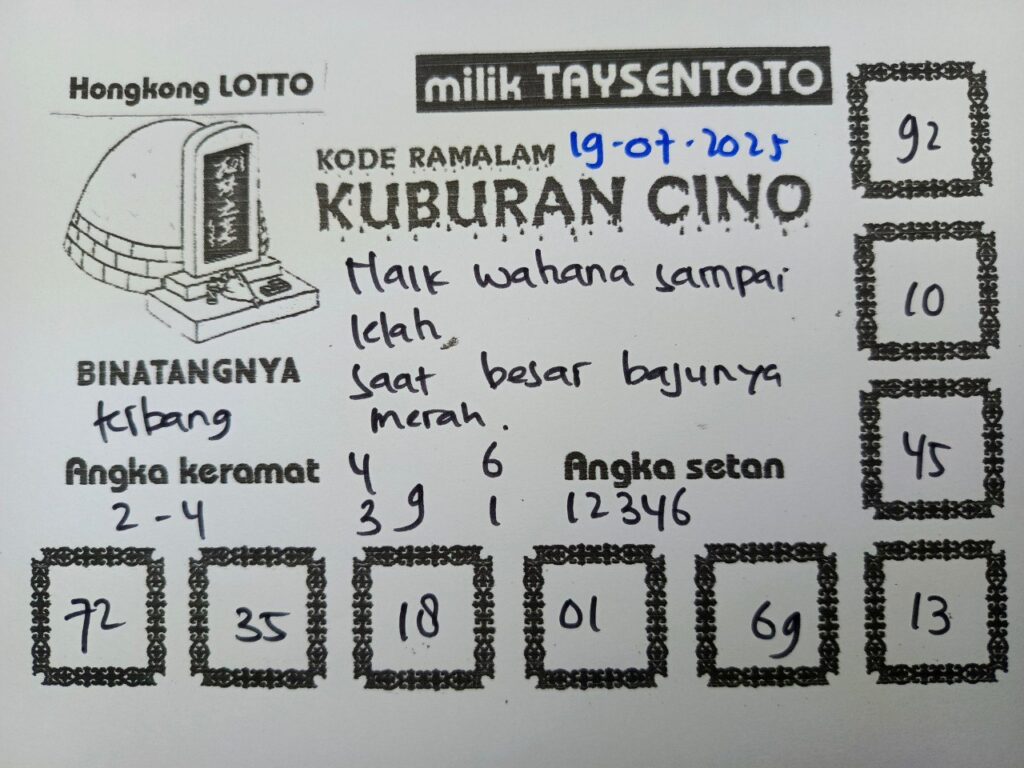 Hongkong LOTTO
milik TAYSENTOTO
KODE RAMALAM 19-07-2025
KUBURAN CINO
Naik wahana sampai
lelah
saat besar bajunya
merah.
BINATANGNYA
terbang
Angka keramat
2-4
4 6
3 9 1
Angka setan
12346
92
10
45
72 35 18 01 69 13